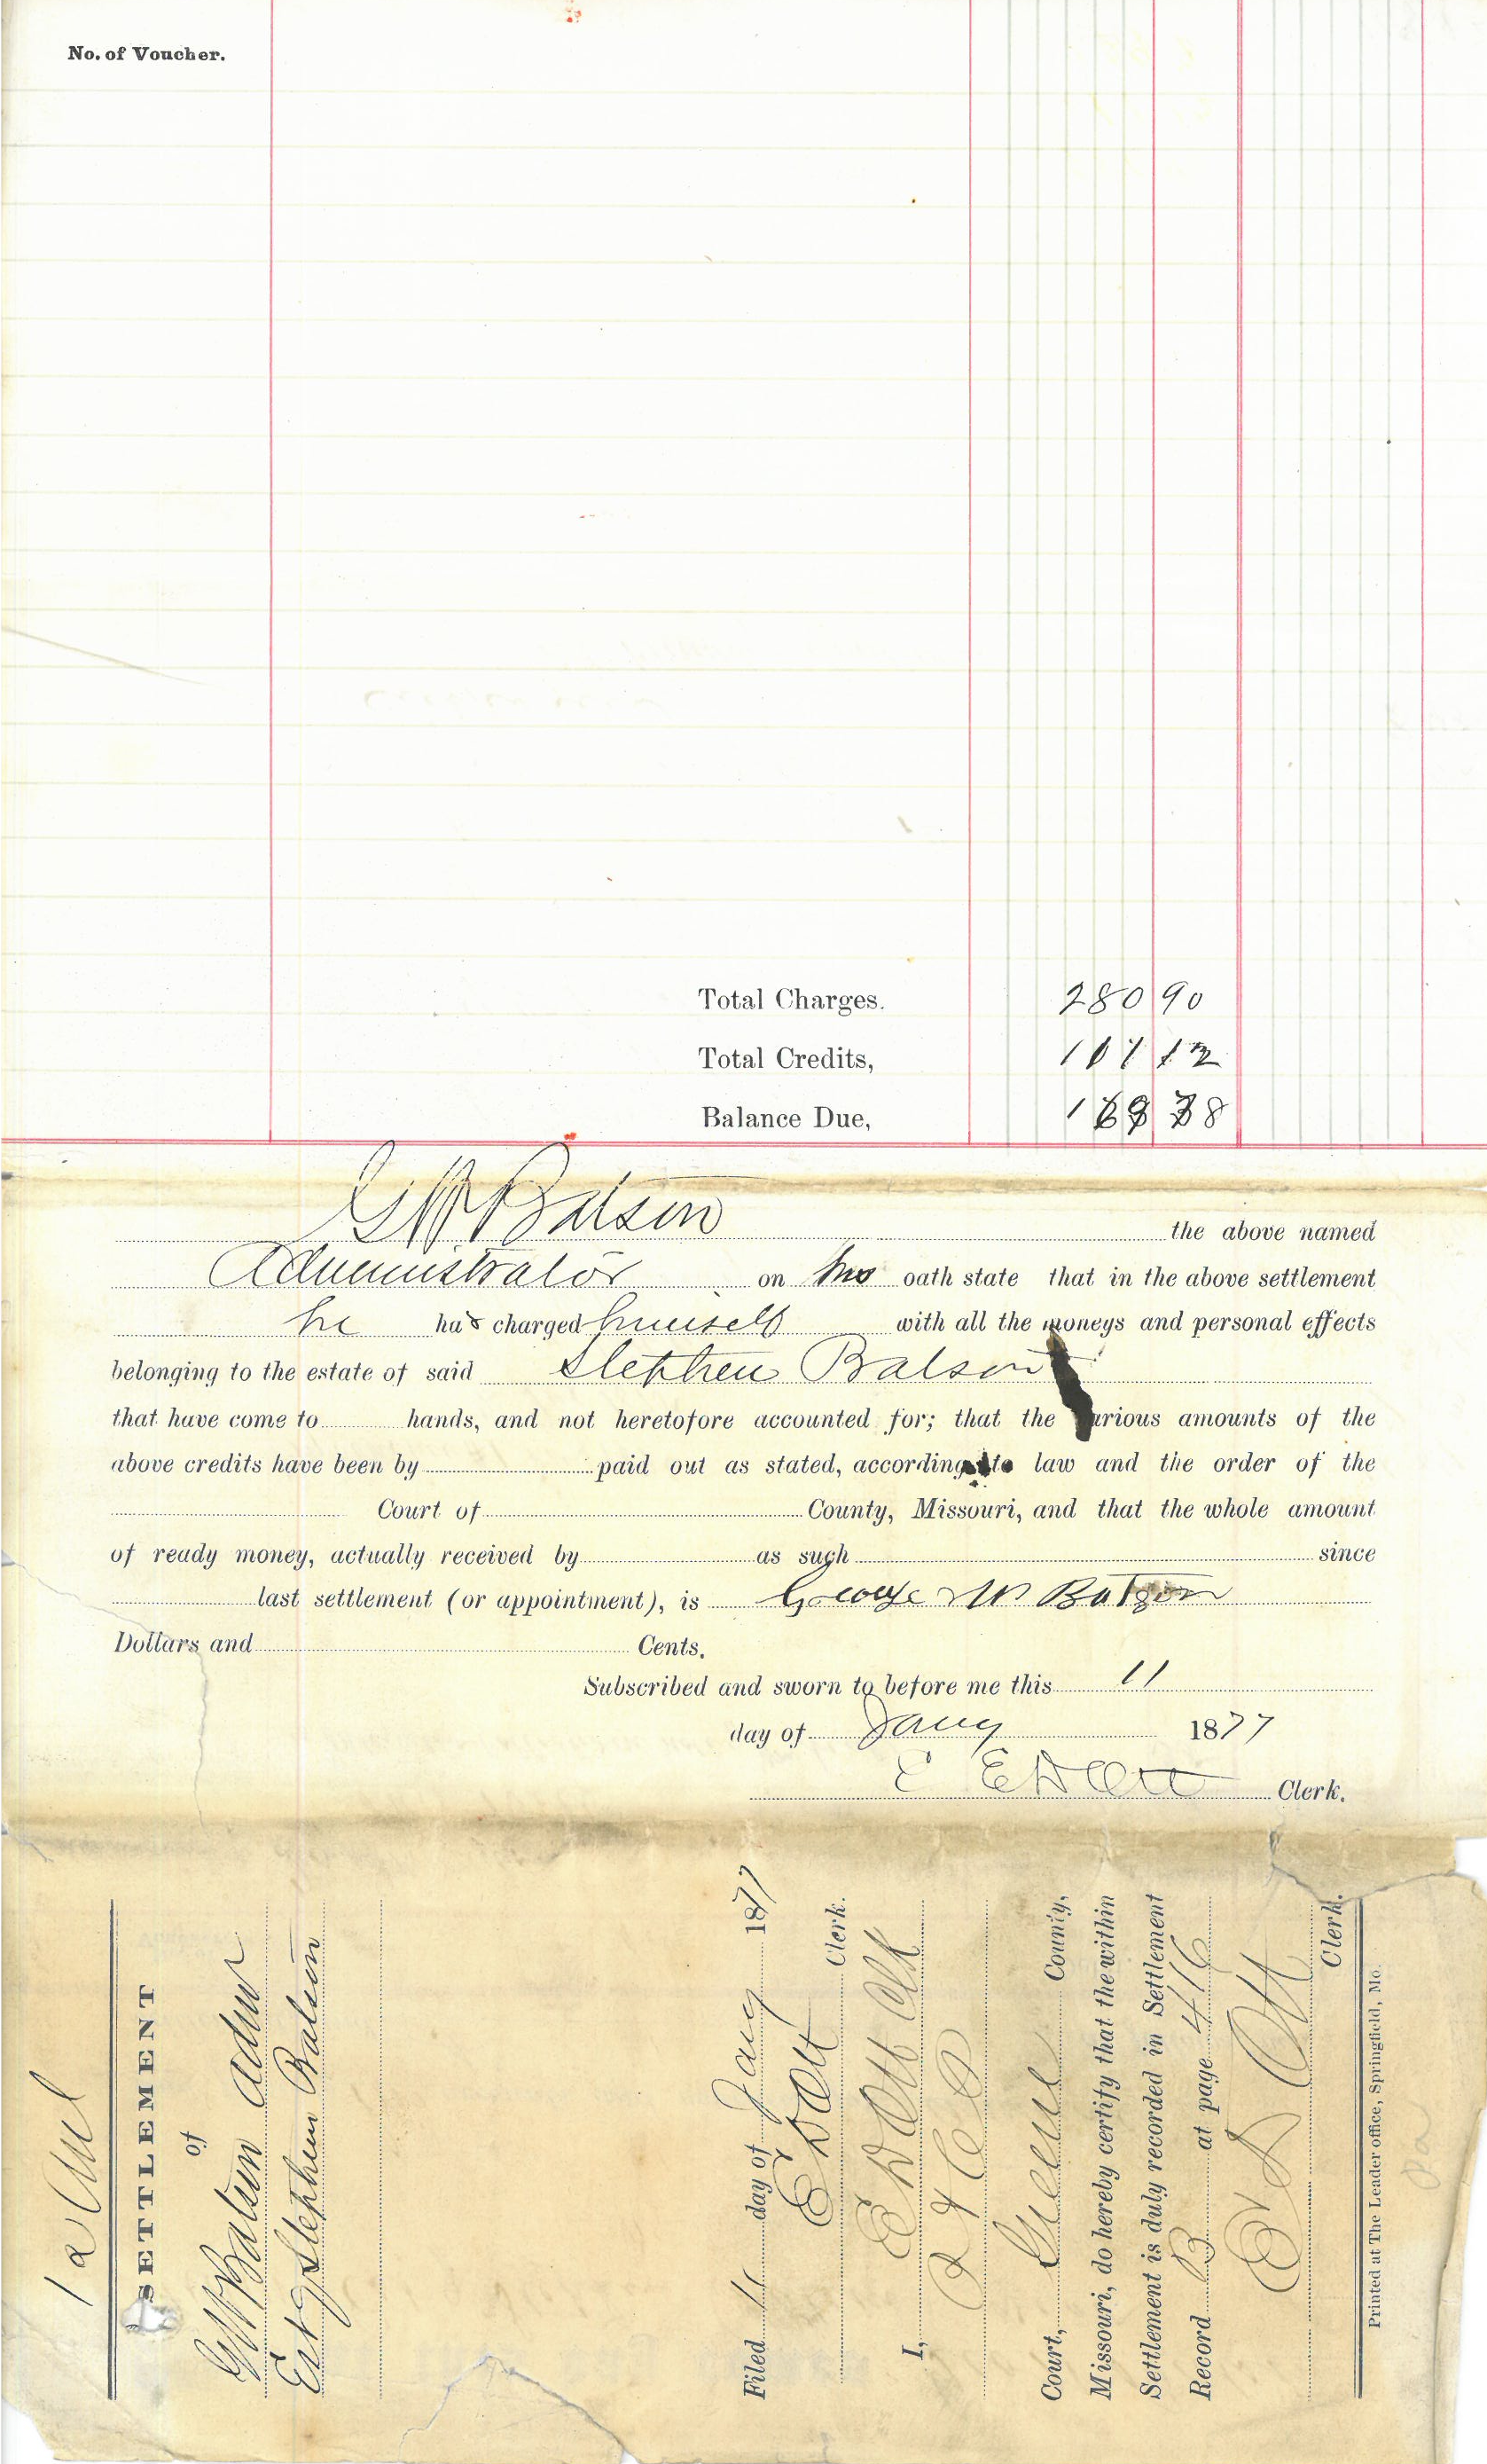 No. of Voucher.
Total Charges. 280 90
Total Credits,
Balance Due,
G W Batson the above named
Administrator on his oath state that in the above settlement
he has charged himself with all the moneys and personal effects
belonging to the estate of said Stephen Batson
that have come to hands, and not heretofore accounted for; that the various amounts of the
above credits have been by paid out as stated, according to law and the order of the
Court of County, Missouri, and that the whole amount
of ready money, actually received by as such since
last settlement (or appointment), is George W Batson
Dollars and Cents.
Subscribed and sworn to before me this 11
day of Jany 1877
E D Ott Clerk.
SETTLEMENT
of
G W Batson Admr
Est of Stephen Batson
Filed 11 day of Jany 1877
E D Ott Clerk.
I, E D Ott Clk
Court, Greene County,
Missouri, do hereby certify that the within
Settlement is duly recorded in Settlement
Record B at page 416
E D Ott
Clerk.
Printed at The Leader office, Springfield, Mo.